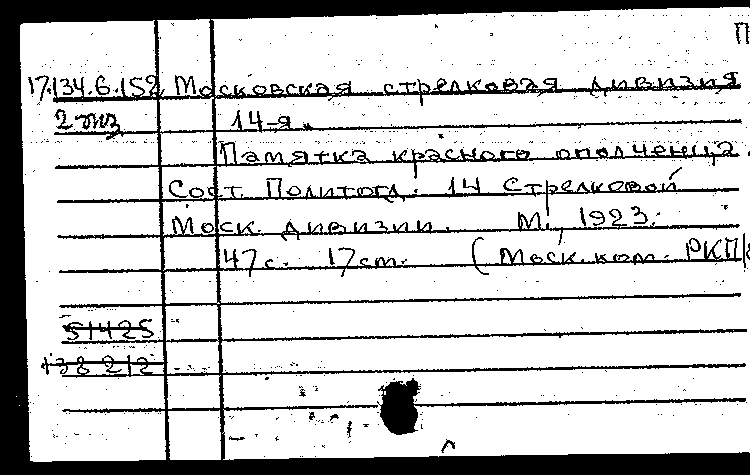 П
17.134.6.152 Московская стрелковая дивизия
2 экз 14-я.
Памятка красного ополченца.
Сост. Политотд. 14 Стрелковой
Моск. дивизии. М., 1923.
47 с. 17 см. (Моск. ком. РКП/
51425
138 212